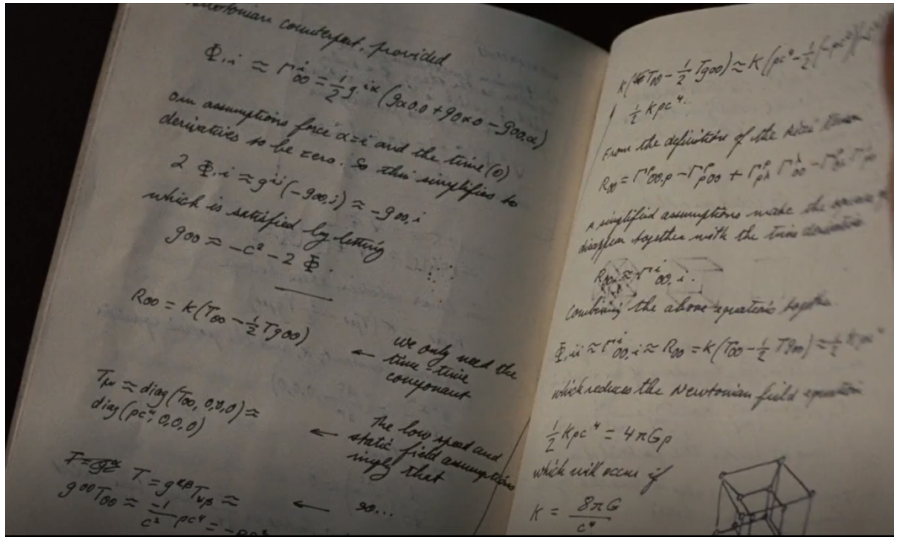 Newtonian counterpart, provided
Φ,i ≈ Γ^i_00 = 1/2 g^iα (gα0,0 + g0α,0 − g00,α)
our assumptions force α=i and the time (0)
derivatives to be zero. So this simplifies to
2 Φ,i ≈ g^ij (−g00,i) ≈ −g00,i
which is satisfied by letting
g00 ≈ −c² − 2 Φ.
R00 = K(T00 − 1/2 Tg00)
← we only need the
time-time
component
Tμν ≈ diag(T00, 0,0,0) ≈
diag(ρc⁴, 0,0,0)
← The low speed and
static field assumptions
imply that
T = g^αβ Tαβ ≈
g^00 T00 ≈ −1/c² ρc⁴ =
← so...
K(T00 − 1/2 Tg00) ≈ K(ρc⁴ − 1/2
1/2 Kρc⁴.
From the definition of the
R00 = Γ^ρ_00,ρ − Γ^ρ_ρ0,0 + Γ^ρ_ρλ Γ^λ_00 −
simplified assumptions make the
disappear together with the time derivative
R00 ≈ Γ^i_00,i.
Combining the above equations together
Φ,ii ≈ Γ^i_00,i ≈ R00 = K(T00 − 1/2 Tg00) ≈ 1/2 Kρc⁴
which reduces the Newtonian field equation
1/2 Kρc⁴ = 4πGρ
which will occur if
K = 8πG/c⁴